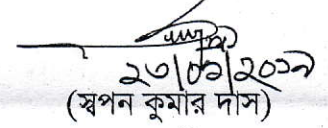 ২৩|০৯|২০১৯
(স্বপন কুমার দাস)